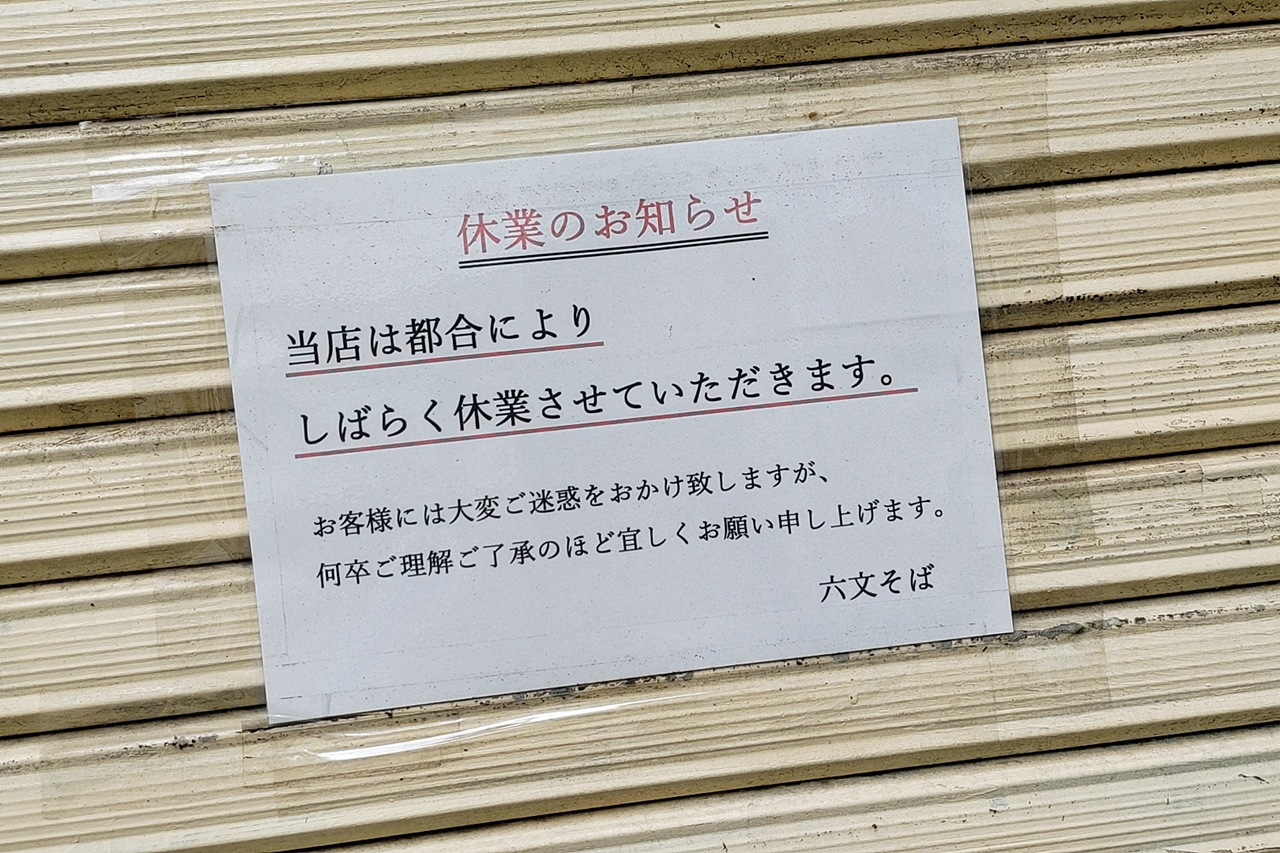 休業のお知らせ
当店は都合により
しばらく休業させていただきます。
お客様には大変ご迷惑をおかけ致しますが、
何卒ご理解ご了承のほど宜しくお願い申し上げます。
六文そば